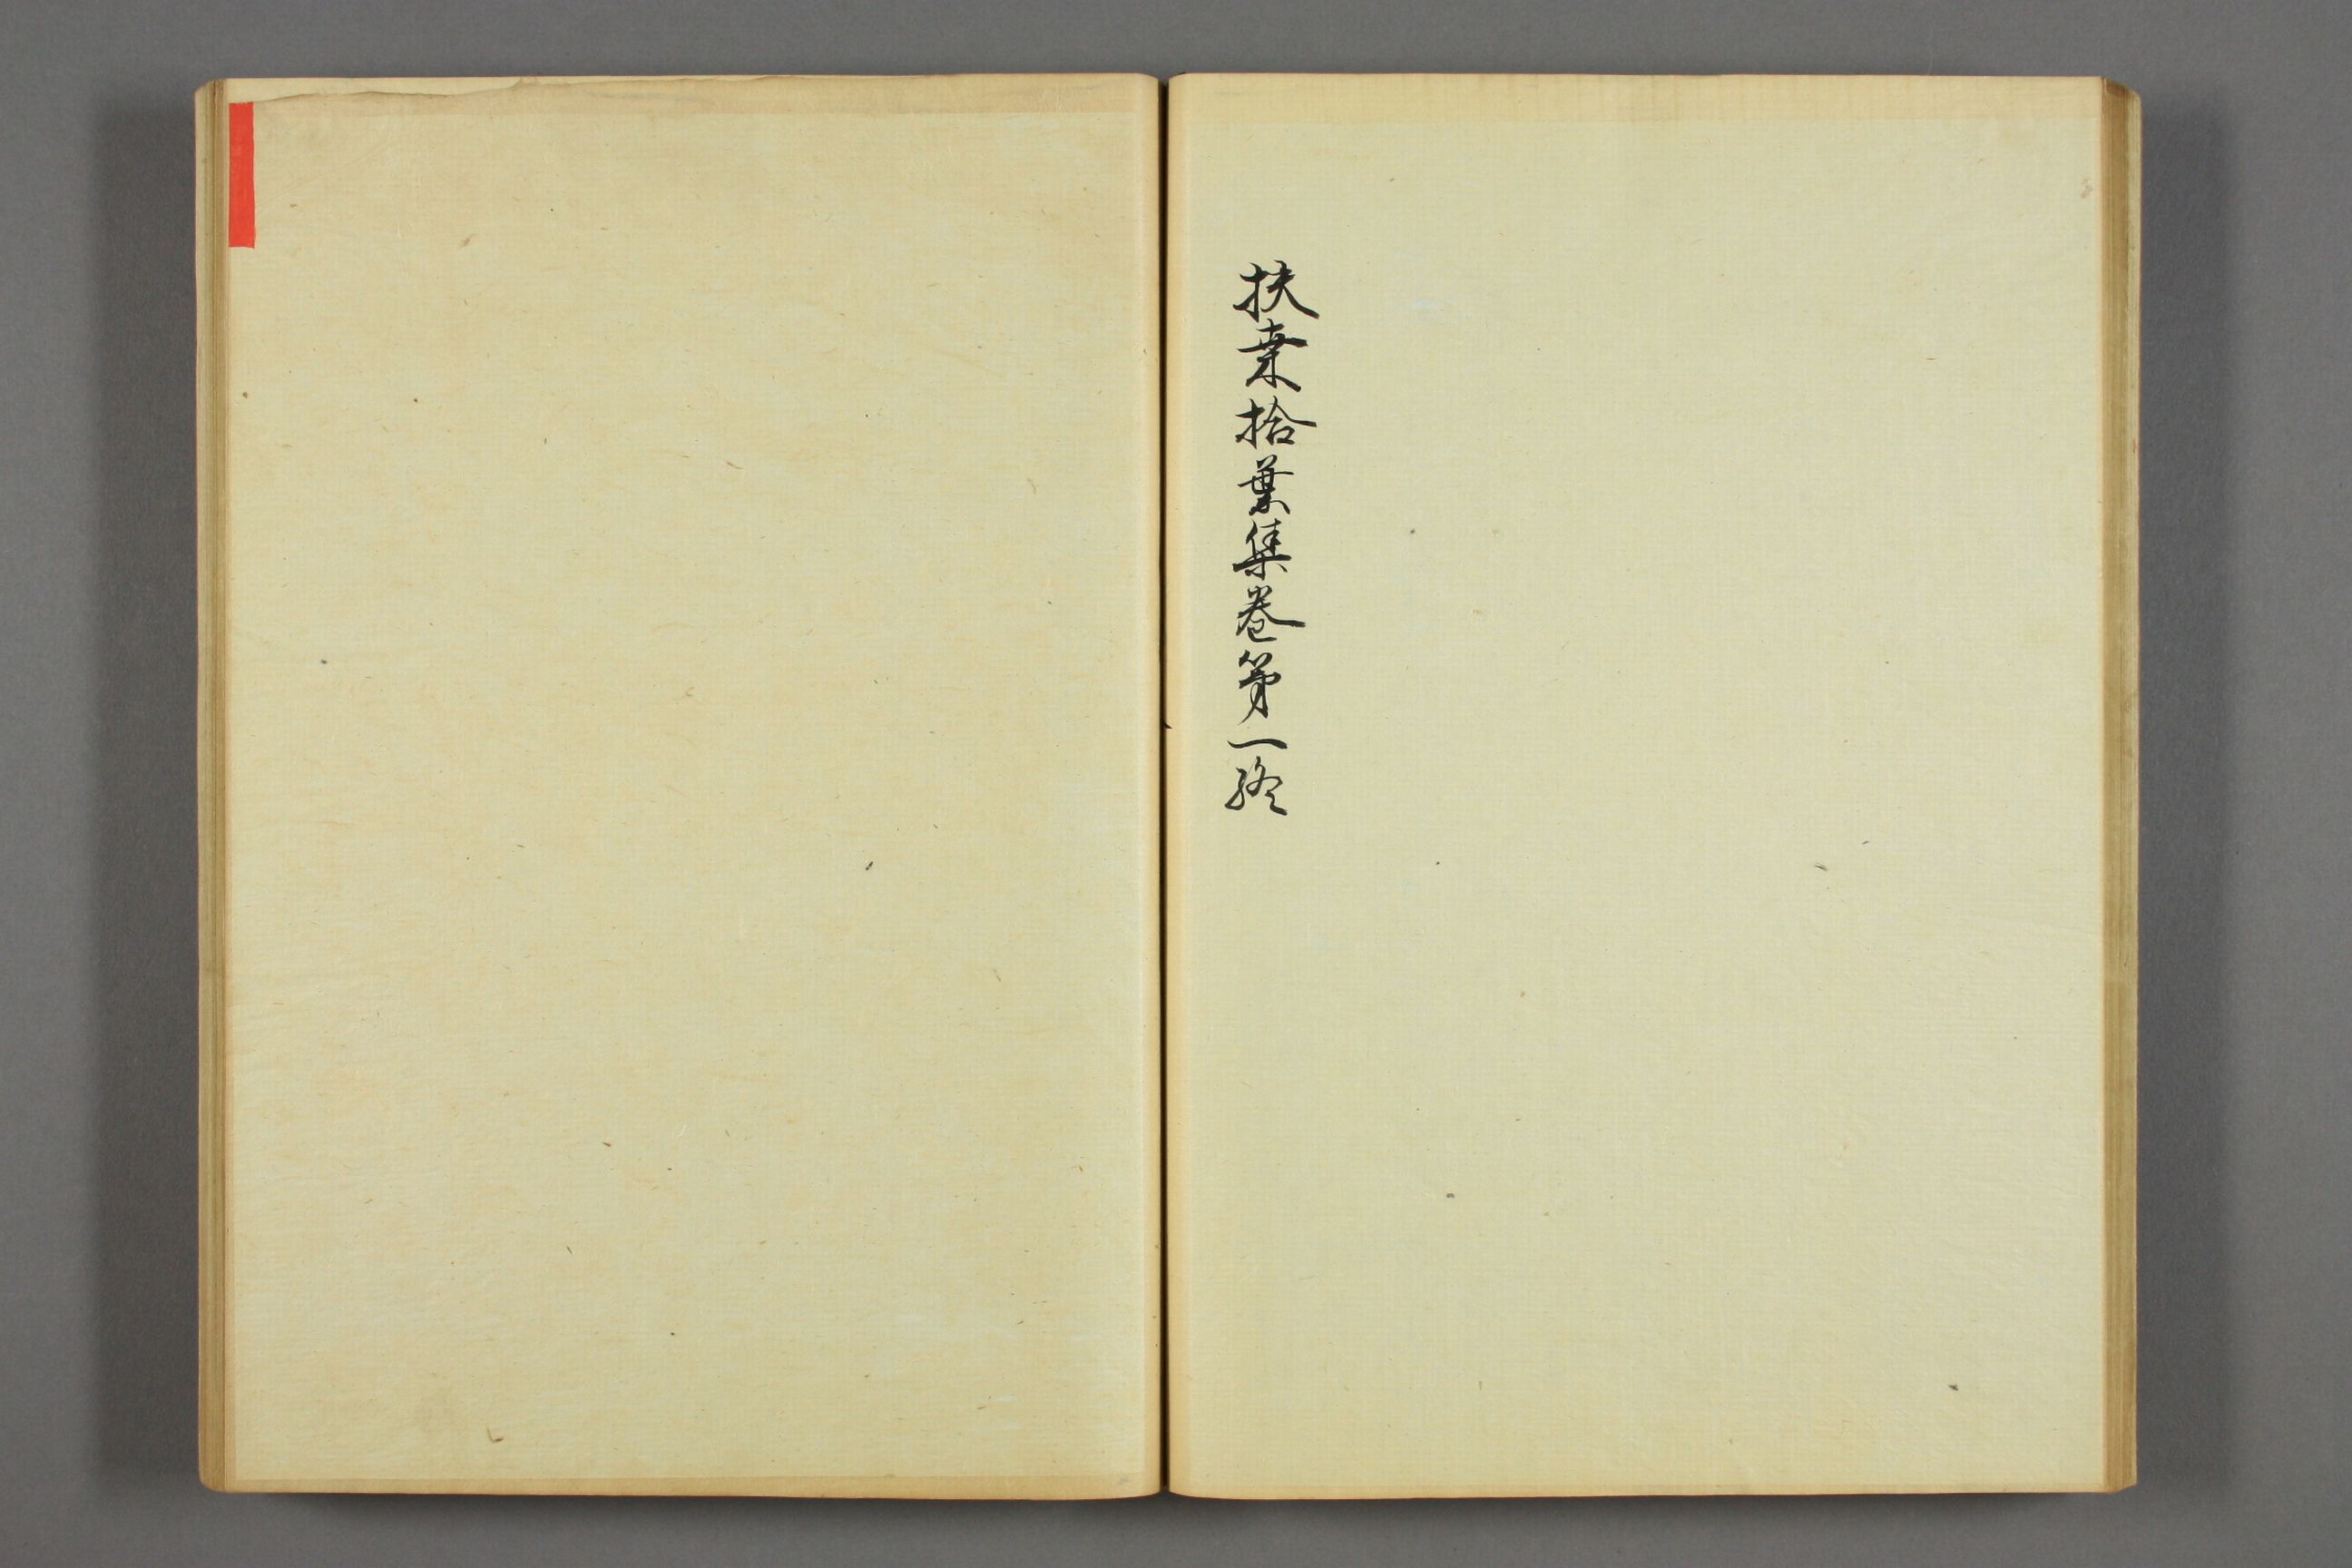 扶桒拾葉集巻第一終